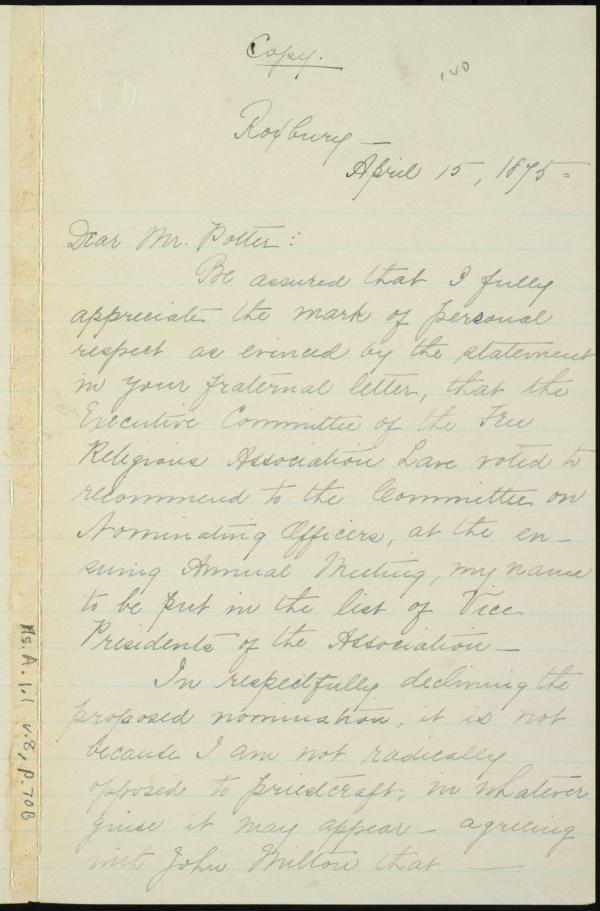 Copy.
Roxbury —
April 15, 1875 =
Dear Mr. Potter:
Be assured that I fully
appreciate the mark of personal
respect as evinced by the statement
in your fraternal letter, that the
Executive Committee of the Free
Religious Association have voted to
recommend to the Committee on
Nominating Officers, at the en-
suing Annual Meeting, my name
to be put in the list of Vice
Presidents of the Association —
In respectfully declining the
proposed nomination, it is not
because I am not radically
opposed to priestcraft, in whatever
guise it may appear — agreeing
with John Milton that —
Ms. A. 1.1 v. 8, p. 70B